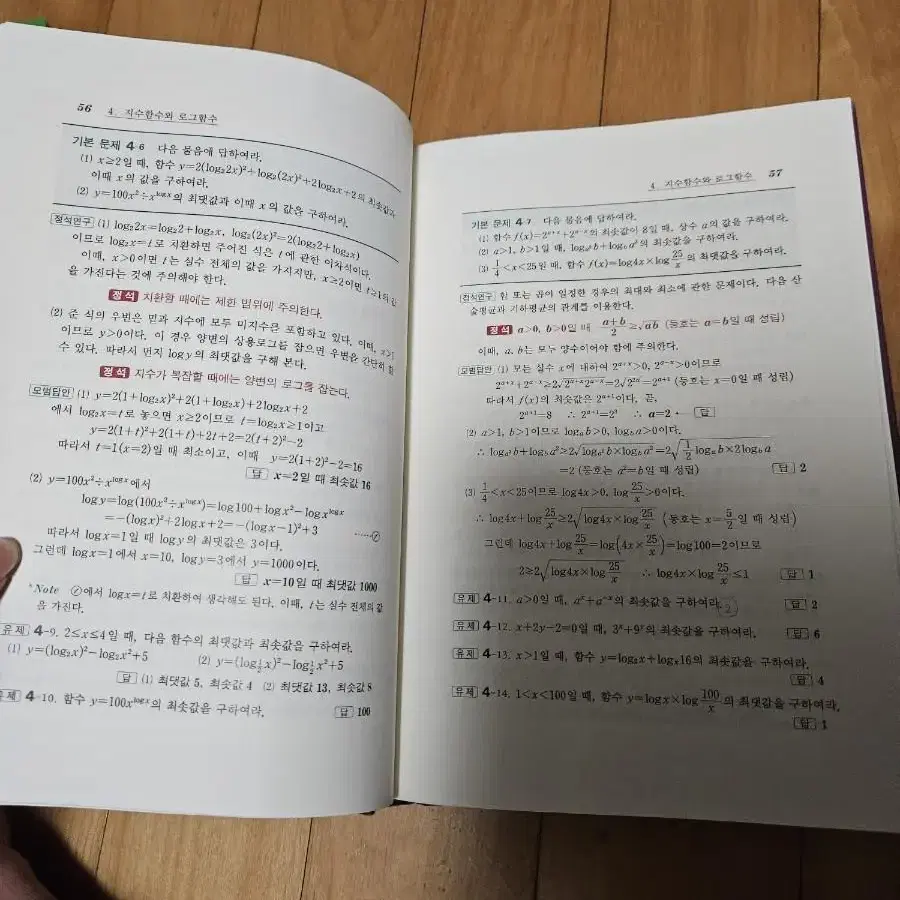 56 4. 지수함수와 로그함수
기본 문제 4-6 다음 물음에 답하여라.
(1) x≥2일 때, 함수 y=2(log₂2x)²+log₂(2x)²+2log₂x+2의 최솟값과
이때 x의 값을 구하여라.
(2) y=100x²÷x^{logx}의 최댓값과 이때 x의 값을 구하여라.
정석연구 (1) log₂2x=log₂2+log₂x, log₂(2x)²=2(log₂2+log₂x)
이므로 log₂x=t로 치환하면 주어진 식은 t에 관한 이차식이다.
이때, x>0이면 t는 실수 전체의 값을 가지지만, x≥2이면 t≥1의 값
을 가진다는 것에 주의해야 한다.
정석 치환할 때에는 제한 범위에 주의한다.
(2) 준 식의 우변은 밑과 지수에 모두 미지수를 포함하고 있다. 이때, x>
이므로 y>0이다. 이 경우 양변의 상용로그를 잡으면 우변을 간단히 할
수 있다. 따라서 먼저 logy의 최댓값을 구해 본다.
정석 지수가 복잡할 때에는 양변의 로그를 잡는다.
모범답안 (1) y=2(1+log₂x)²+2(1+log₂x)+2log₂x+2
에서 log₂x=t로 놓으면 x≥2이므로 t=log₂x≥1이고
y=2(1+t)²+2(1+t)+2t+2=2(t+2)²-2
따라서 t=1(x=2)일 때 최소이고, 이때 y=2(1+2)²-2=16
답 x=2일 때 최솟값 16
(2) y=100x²÷x^{logx}에서
logy=log(100x²÷x^{logx})=log100+logx²-logx^{logx}
=-(logx)²+2logx+2=-(logx-1)²+3 ……㉠
따라서 logx=1일 때 logy의 최댓값은 3이다.
그런데 logx=1에서 x=10, logy=3에서 y=1000이다.
답 x=10일 때 최댓값 1000
*Note ㉠에서 logx=t로 치환하여 생각해도 된다. 이때, t는 실수 전체의 값
을 가진다.
유제 4-9. 2≤x≤4일 때, 다음 함수의 최댓값과 최솟값을 구하여라.
(1) y=(log₂x)²-log₂x²+5 (2) y=(log_{1/2}x)²-log_{1/2}x²+5
답 (1) 최댓값 5, 최솟값 4 (2) 최댓값 13, 최솟값 8
유제 4-10. 함수 y=100x^{logx}의 최솟값을 구하여라. 답 100
4. 지수함수와 로그함수 57
기본 문제 4-7 다음 물음에 답하여라.
(1) 함수 f(x)=2^{a+x}+2^{a-x}의 최솟값이 8일 때, 상수 a의 값을 구하여라.
(2) a>1, b>1일 때, log_{a²}b+log_{b}a²의 최솟값을 구하여라.
(3) 1/4<x<25일 때, 함수 f(x)=log4x×log25/x의 최댓값을 구하여라.
정석연구 합 또는 곱이 일정한 경우의 최대와 최소에 관한 문제이다. 다음 산
술평균과 기하평균의 관계를 이용한다.
정석 a>0, b>0일 때 (a+b)/2≥√ab (등호는 a=b일 때 성립)
이때, a, b는 모두 양수이어야 함에 주의한다.
모범답안 (1) 모든 실수 x에 대하여 2^{a+x}>0, 2^{a-x}>0이므로
2^{a+x}+2^{a-x}≥2√(2^{a+x}2^{a-x})=2√(2^{2a})=2^{a+1} (등호는 x=0일 때 성립)
따라서 f(x)의 최솟값은 2^{a+1}이다. 곧,
2^{a+1}=8 ∴ 2^{a+1}=2³ ∴ a=2 ← 답
(2) a>1, b>1이므로 log_{a}b>0, log_{b}a>0이다.
∴ log_{a²}b+log_{b}a²≥2√(log_{a²}b×log_{b}a²)=2√(1/2 log_{a}b×2log_{b}a)
=2 (등호는 a²=b일 때 성립) 답 2
(3) 1/4<x<25이므로 log4x>0, log25/x>0이다.
∴ log4x+log25/x≥2√(log4x×log25/x) (등호는 x=5/2일 때 성립)
그런데 log4x+log25/x=log(4x×25/x)=log100=2이므로
2≥2√(log4x×log25/x) ∴ log4x×log25/x≤1 답 1
유제 4-11. a>0일 때, a^{x}+a^{-x}의 최솟값을 구하여라. 답 2
유제 4-12. x+2y-2=0일 때, 3^{x}+9^{y}의 최솟값을 구하여라. 답 6
유제 4-13. x>1일 때, 함수 y=log₂x+log_{x}16의 최솟값을 구하여라.
답 4
유제 4-14. 1<x<100일 때, 함수 y=logx×log100/x의 최댓값을 구하여라.
답 1